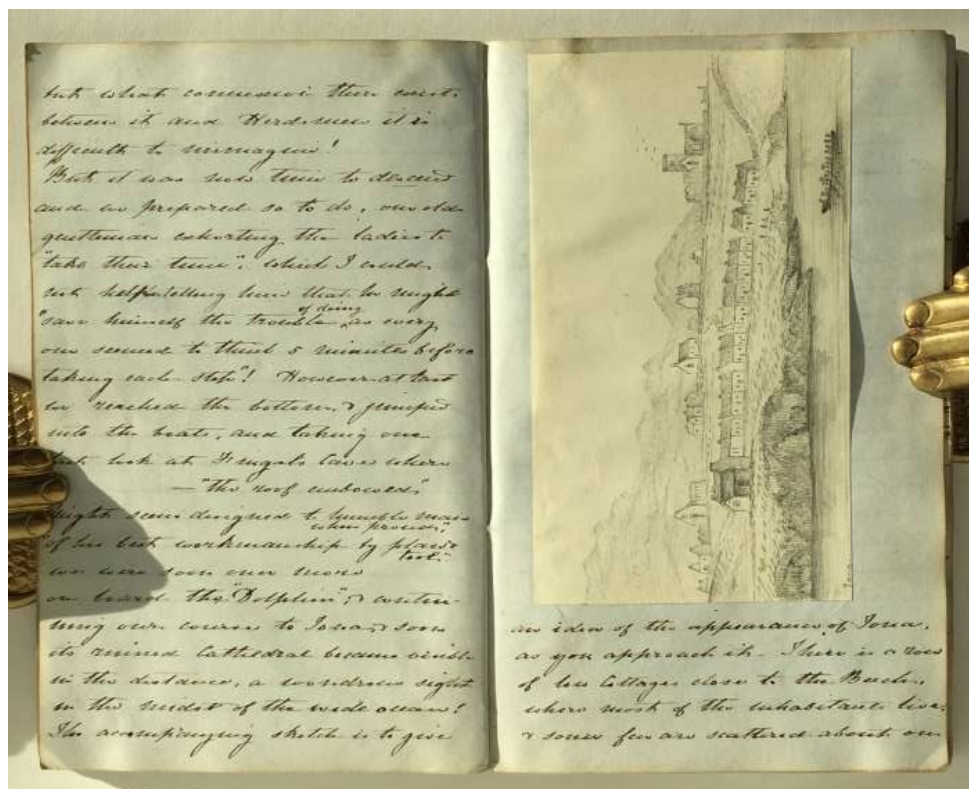 but what connexion there exists
between it and Herdsmen it is
difficult to immagine!
But it was now time to descend
and we prepared so to do, our old
gentleman exhorting the ladies to
"take their time", which I could
not help telling him that he might
"save himself the trouble of doing, as every
one seemed to think 5 minutes before
taking each step"! However at last
we reached the bottom, & jumped
into the boats, and taking one
last look at Fingals Cave where
— "the roof embowed"
Might seem designed to humble man
when proudest,
"of his best workmanship by plan &
tool."
we were soon once more
on board the "Dolphin", & contin-
uing our course to Iona, & soon
its ruined Cathedral became visible
in the distance, a wondrous sight
in the midst of the wide ocean!
The acompanying sketch is to give
an idea of the appearance of Iona,
as you approach it. There is a row
of low Cottages close to the Beach,
where most of the inhabitants live,
& some few are scattered about on